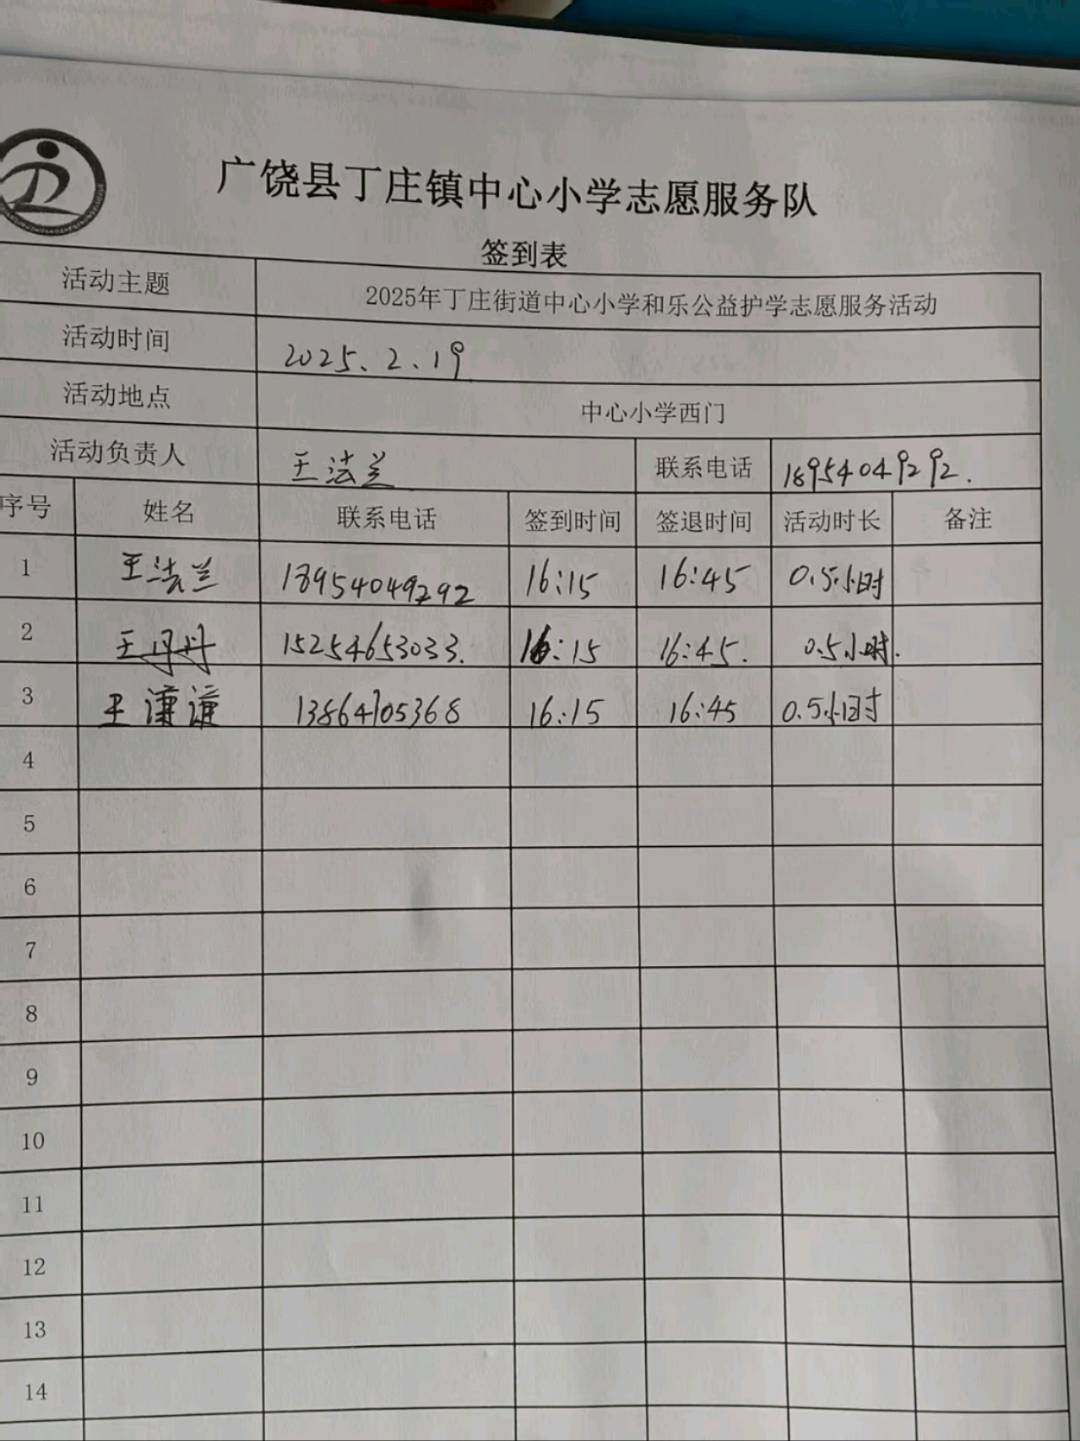 广饶县丁庄镇中心小学志愿服务队
签到表
活动主题 2025年丁庄街道中心小学和乐公益护学志愿服务活动
活动时间 2025.2.19
活动地点 中心小学西门
活动负责人 王法兰 联系电话 18954049292.
序号 姓名 联系电话 签到时间 签退时间 活动时长 备注
1 王法兰 18954049292 16:15 16:45 0.5小时
2 王丹丹 15254653033. 16:15 16:45. 0.5小时.
3 王谦谦 13864705368 16:15 16:45 0.5小时
4
5
6
7
8
9
10
11
12
13
14